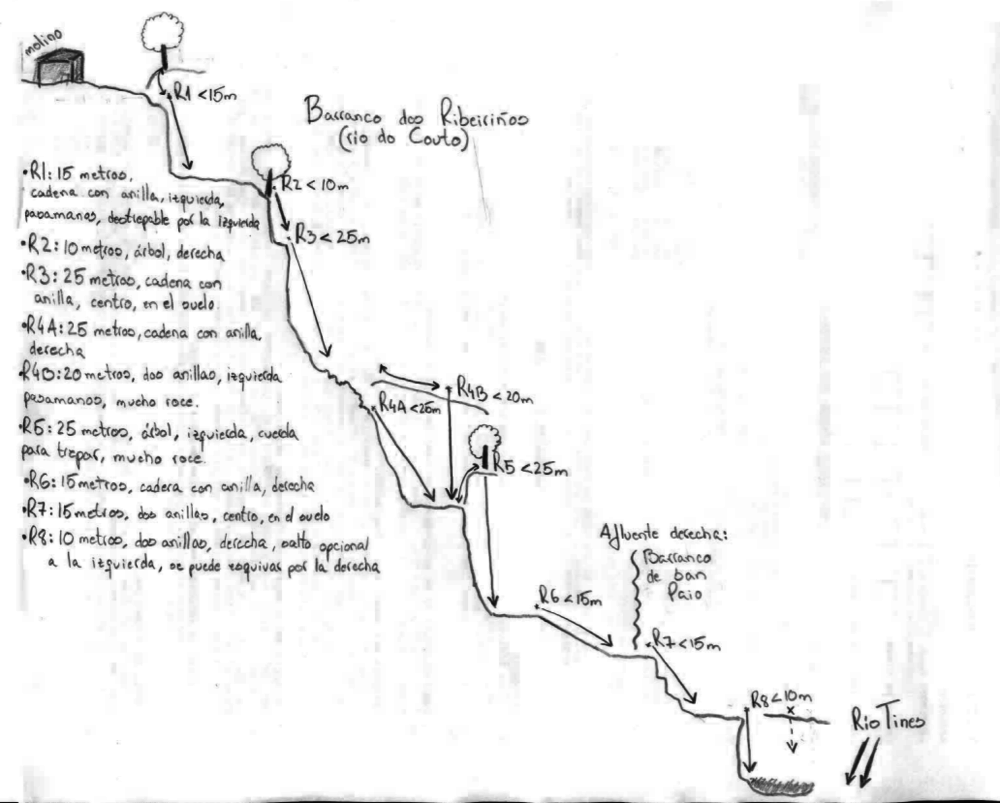 molino
R1 <15m
Barranco dos Ribeiriños
(río do Couto)
R2 < 10m
R3 < 25m
•R1: 15 metros,
cadena con anilla, izquierda,
pasamanos, destrepable por la izquierda
•R2: 10 metros, árbol, derecha
•R3: 25 metros, cadena con
anilla, centro, en el suelo.
•R4A: 25 metros, cadena con anilla,
derecha
R4B: 20 metros, dos anillas, izquierda
pasamanos, mucho roce.
•R5: 25 metros, árbol, izquierda, cuerda
para trepar, mucho roce.
•R6: 15 metros, cadena con anilla, derecha
•R7: 15 metros, dos anillas, centro, en el suelo
•R8: 10 metros, dos anillas, derecha, salto opcional
a la izquierda, se puede esquivar por la derecha
R4B < 20m
R4A < 25m
R5 < 25m
Afluente derecha:
Barranco
de San
Paio
R6 < 15m
R7 < 15m
R8 < 10m
Río Tines